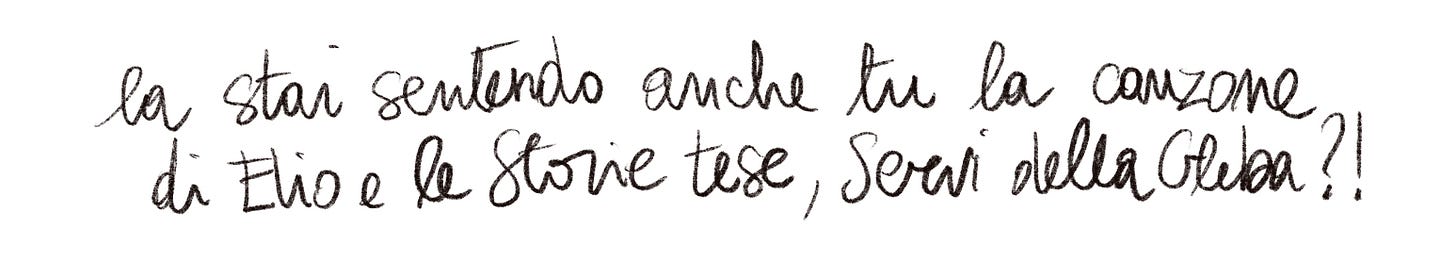 la stai sentendo anche tu la canzone
di Elio e le Storie tese, Servi della Gleba?!